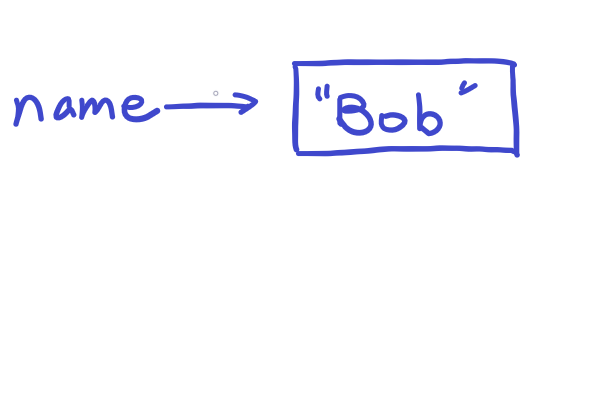 name → "Bob"